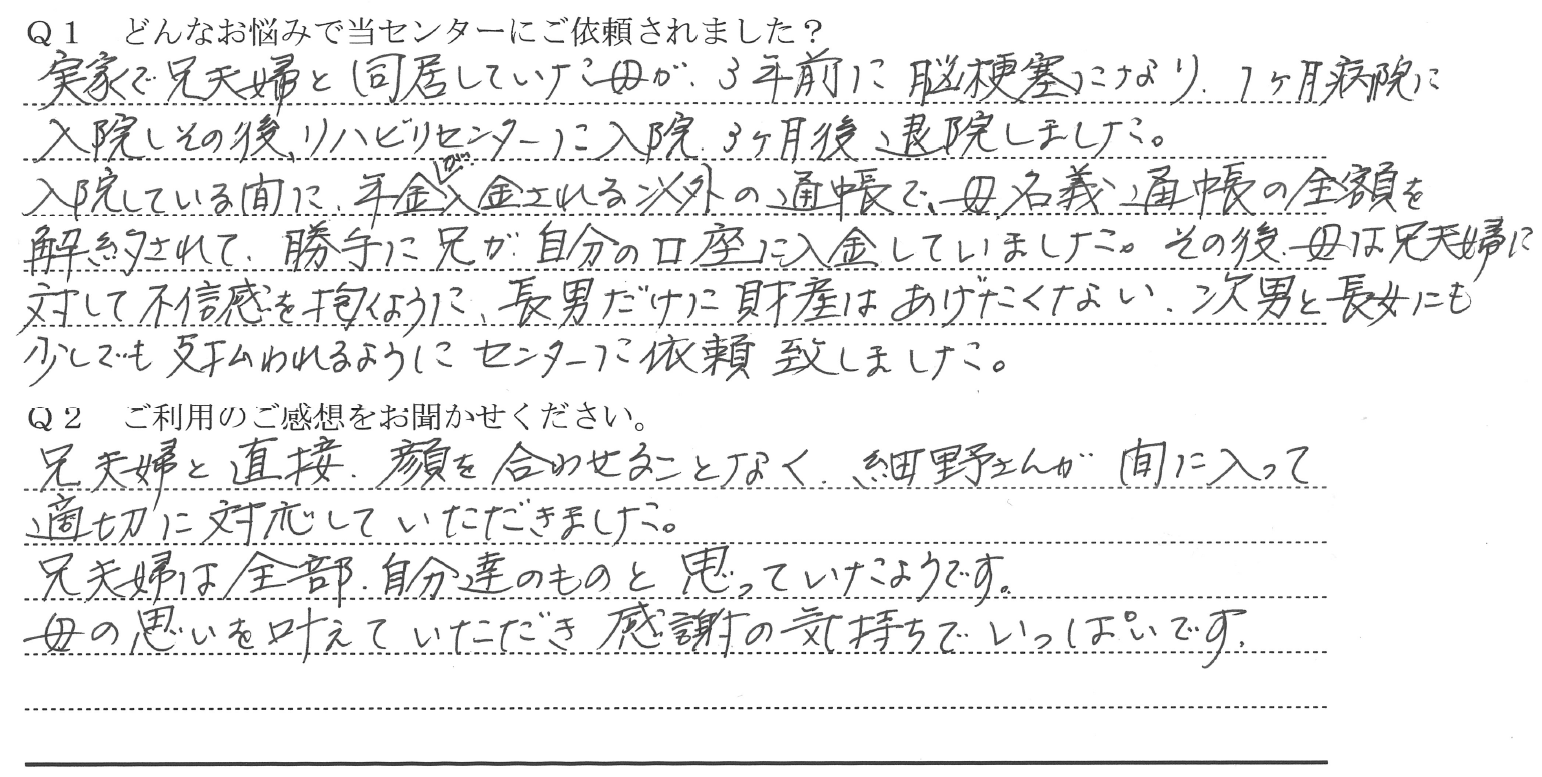 Q1 どんなお悩みで当センターにご依頼されました?
実家で兄夫婦と同居していた母が、3年前に脳梗塞になり、1ヶ月病院に
入院しその後、リハビリセンターに入院、3ヶ月後退院しました。
入院している間に、年金入金される以外の通帳で、母名義通帳の全額を
解約されて、勝手に兄が自分の口座に入金していました。その後、母は兄夫婦に
対して不信感を抱くように、長男だけに財産はあげたくない、次男と長女にも
少しでも支払われるようにセンターに依頼致しました。
Q2 ご利用のご感想をお聞かせください。
兄夫婦と直接、顔を合わせることなく、細野さんが間に入って
適切に対応していただきました。
兄夫婦は全部、自分達のものと思っていたようです。
母の思いを叶えていただき感謝の気持ちでいっぱいです。